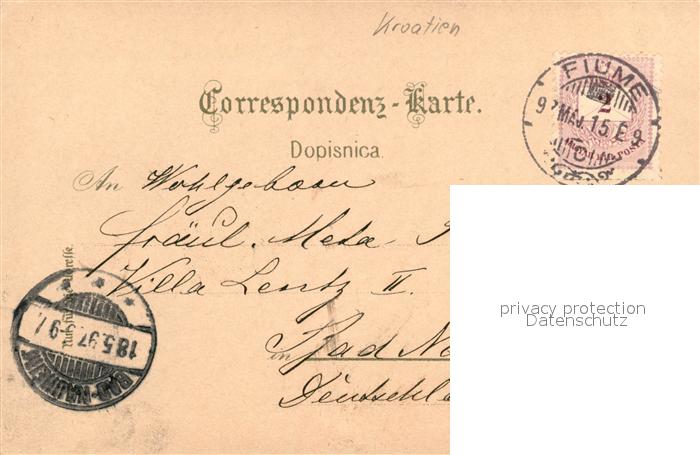 Kroatien
Correspondenz-Karte.
Dopisnica
FIUME
97 MÁJ. 15. E 9
2
An Wohlgeboren
Fräul. Meta
Villa Lentz II.
in Bad Na
Deutschla
BAD-NAUHEIM
18.5.97
privacy protection
Datenschutz